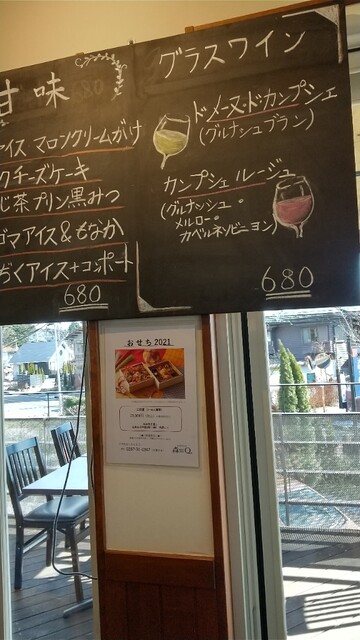 甘味
アイス マロンクリームがけ
クチーズケーキ
じ茶プリン黒みつ
ゴマアイス&もなか
ぢくアイス+コンポート
680
グラスワイン
ドメーヌ・ドカンプシェ
(グルナシュブラン)
カンプシェ ルージュ
(グルナッシュ・
メルロー・
カベルネソビニヨン)
680
おせち 2021